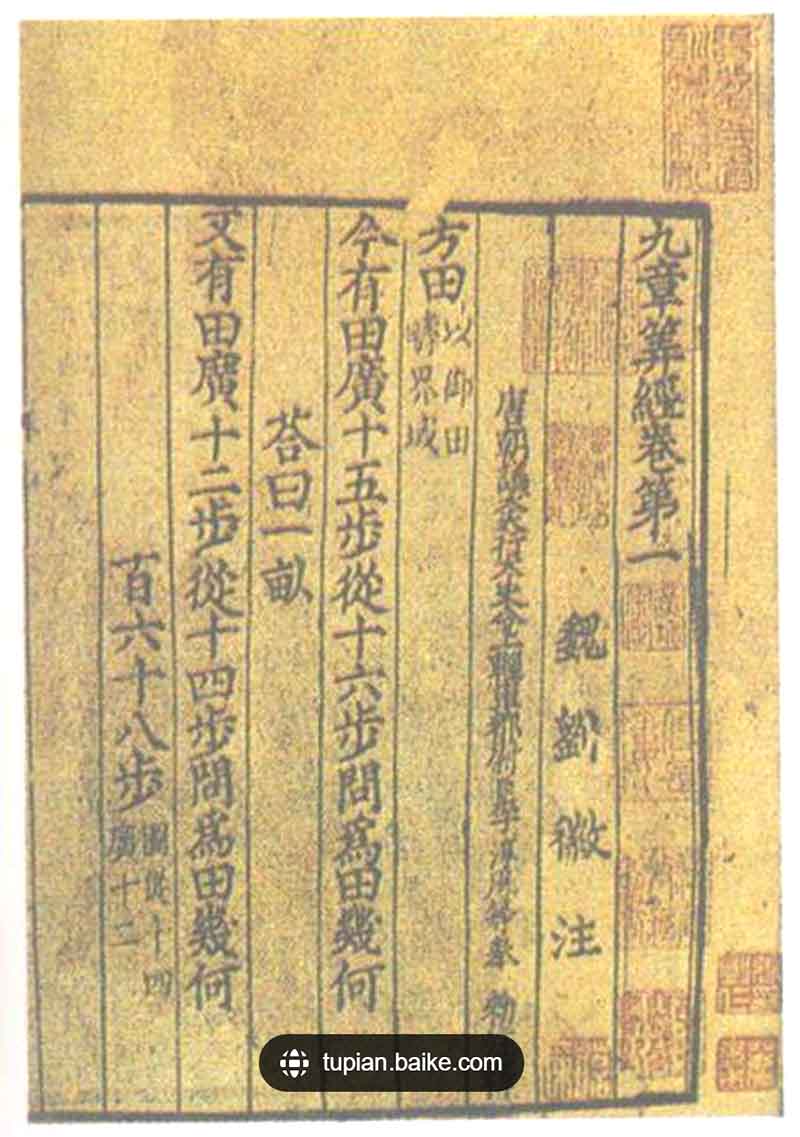 九章筭經卷第一
魏劉徽注
唐朝議大夫行太史令上輕車都尉臣李淳風等奉 勑
方田以御田疇界域
今有田廣十五步從十六步問爲田幾何
荅曰一畝
又有田廣十二步從十四步問爲田幾何
百六十八步圖從十四廣十二
tupian.baike.com